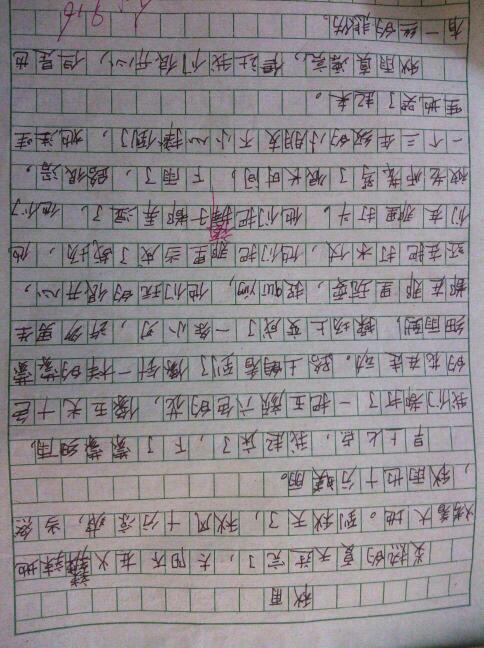 秋雨
炎热的夏天过完了，太阳不在火辣辣地
烤着大地。到秋天了，秋风十分凉爽，当然
，秋雨也十分美丽。
早上七点，我起床了，下了蒙蒙细雨，
我们都打了一把五颜六色的花，像五光十色
的花在走动。路上的看到了像针一样的蒙蒙
细雨，操场上变成了一条小河，许多男生
都在那里玩耍，捉，他们玩的很开心，
还在把打水仗，他们把那里当成了战场，他
们在那里打斗，他们把子都弄湿了，他们
被老师骂了很长时间，下雨了，路很滑，
一个三年级的小朋友不小心摔倒了，他连哇
哇地哭了起来。
秋雨真漂亮，让我们很开心，但是也
有一丝的悲伤。
9.16